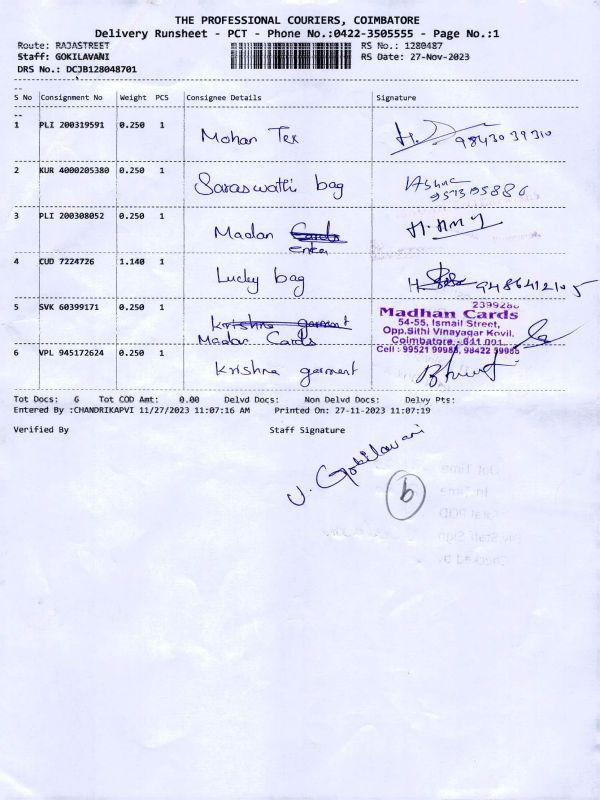 THE PROFESSIONAL COURIERS, COIMBATORE
Delivery Runsheet - PCT - Phone No.:0422-3505555 - Page No.:1
Route: RAJASTREET
RS No.: 1280487
Staff: GOKILAVANI
RS Date: 27-Nov-2023
DRS No.: DCJB128048701
S No Consignment No Weight PCS Consignee Details Signature
1 PLI 200319591 0.250 1 Mohan Tex 9843039310
2 KUR 4000205380 0.250 1 Saraswathi bag
3 PLI 200308052 0.250 1 Madan Cards
enter
4 CUD 7224726 1.140 1 Lucky bag 9486412105
5 SVK 60399171 0.250 1 Krishna garment
Madan Cards
2399280
Madhan Cards
54-55, Ismail Street,
Opp.Sithi Vinayagar Kovil,
Coimbatore - 641 001.
Cell : 99521 99985, 98422 99985
6 VPL 945172624 0.250 1 Krishna garment
Tot Docs: 6 Tot COD Amt: 0.00 Delvd Docs: Non Delvd Docs: Delvy Pts:
Entered By :CHANDRIKAPVI 11/27/2023 11:07:16 AM Printed On: 27-11-2023 11:07:19
Verified By Staff Signature
V. Gokilavani
9